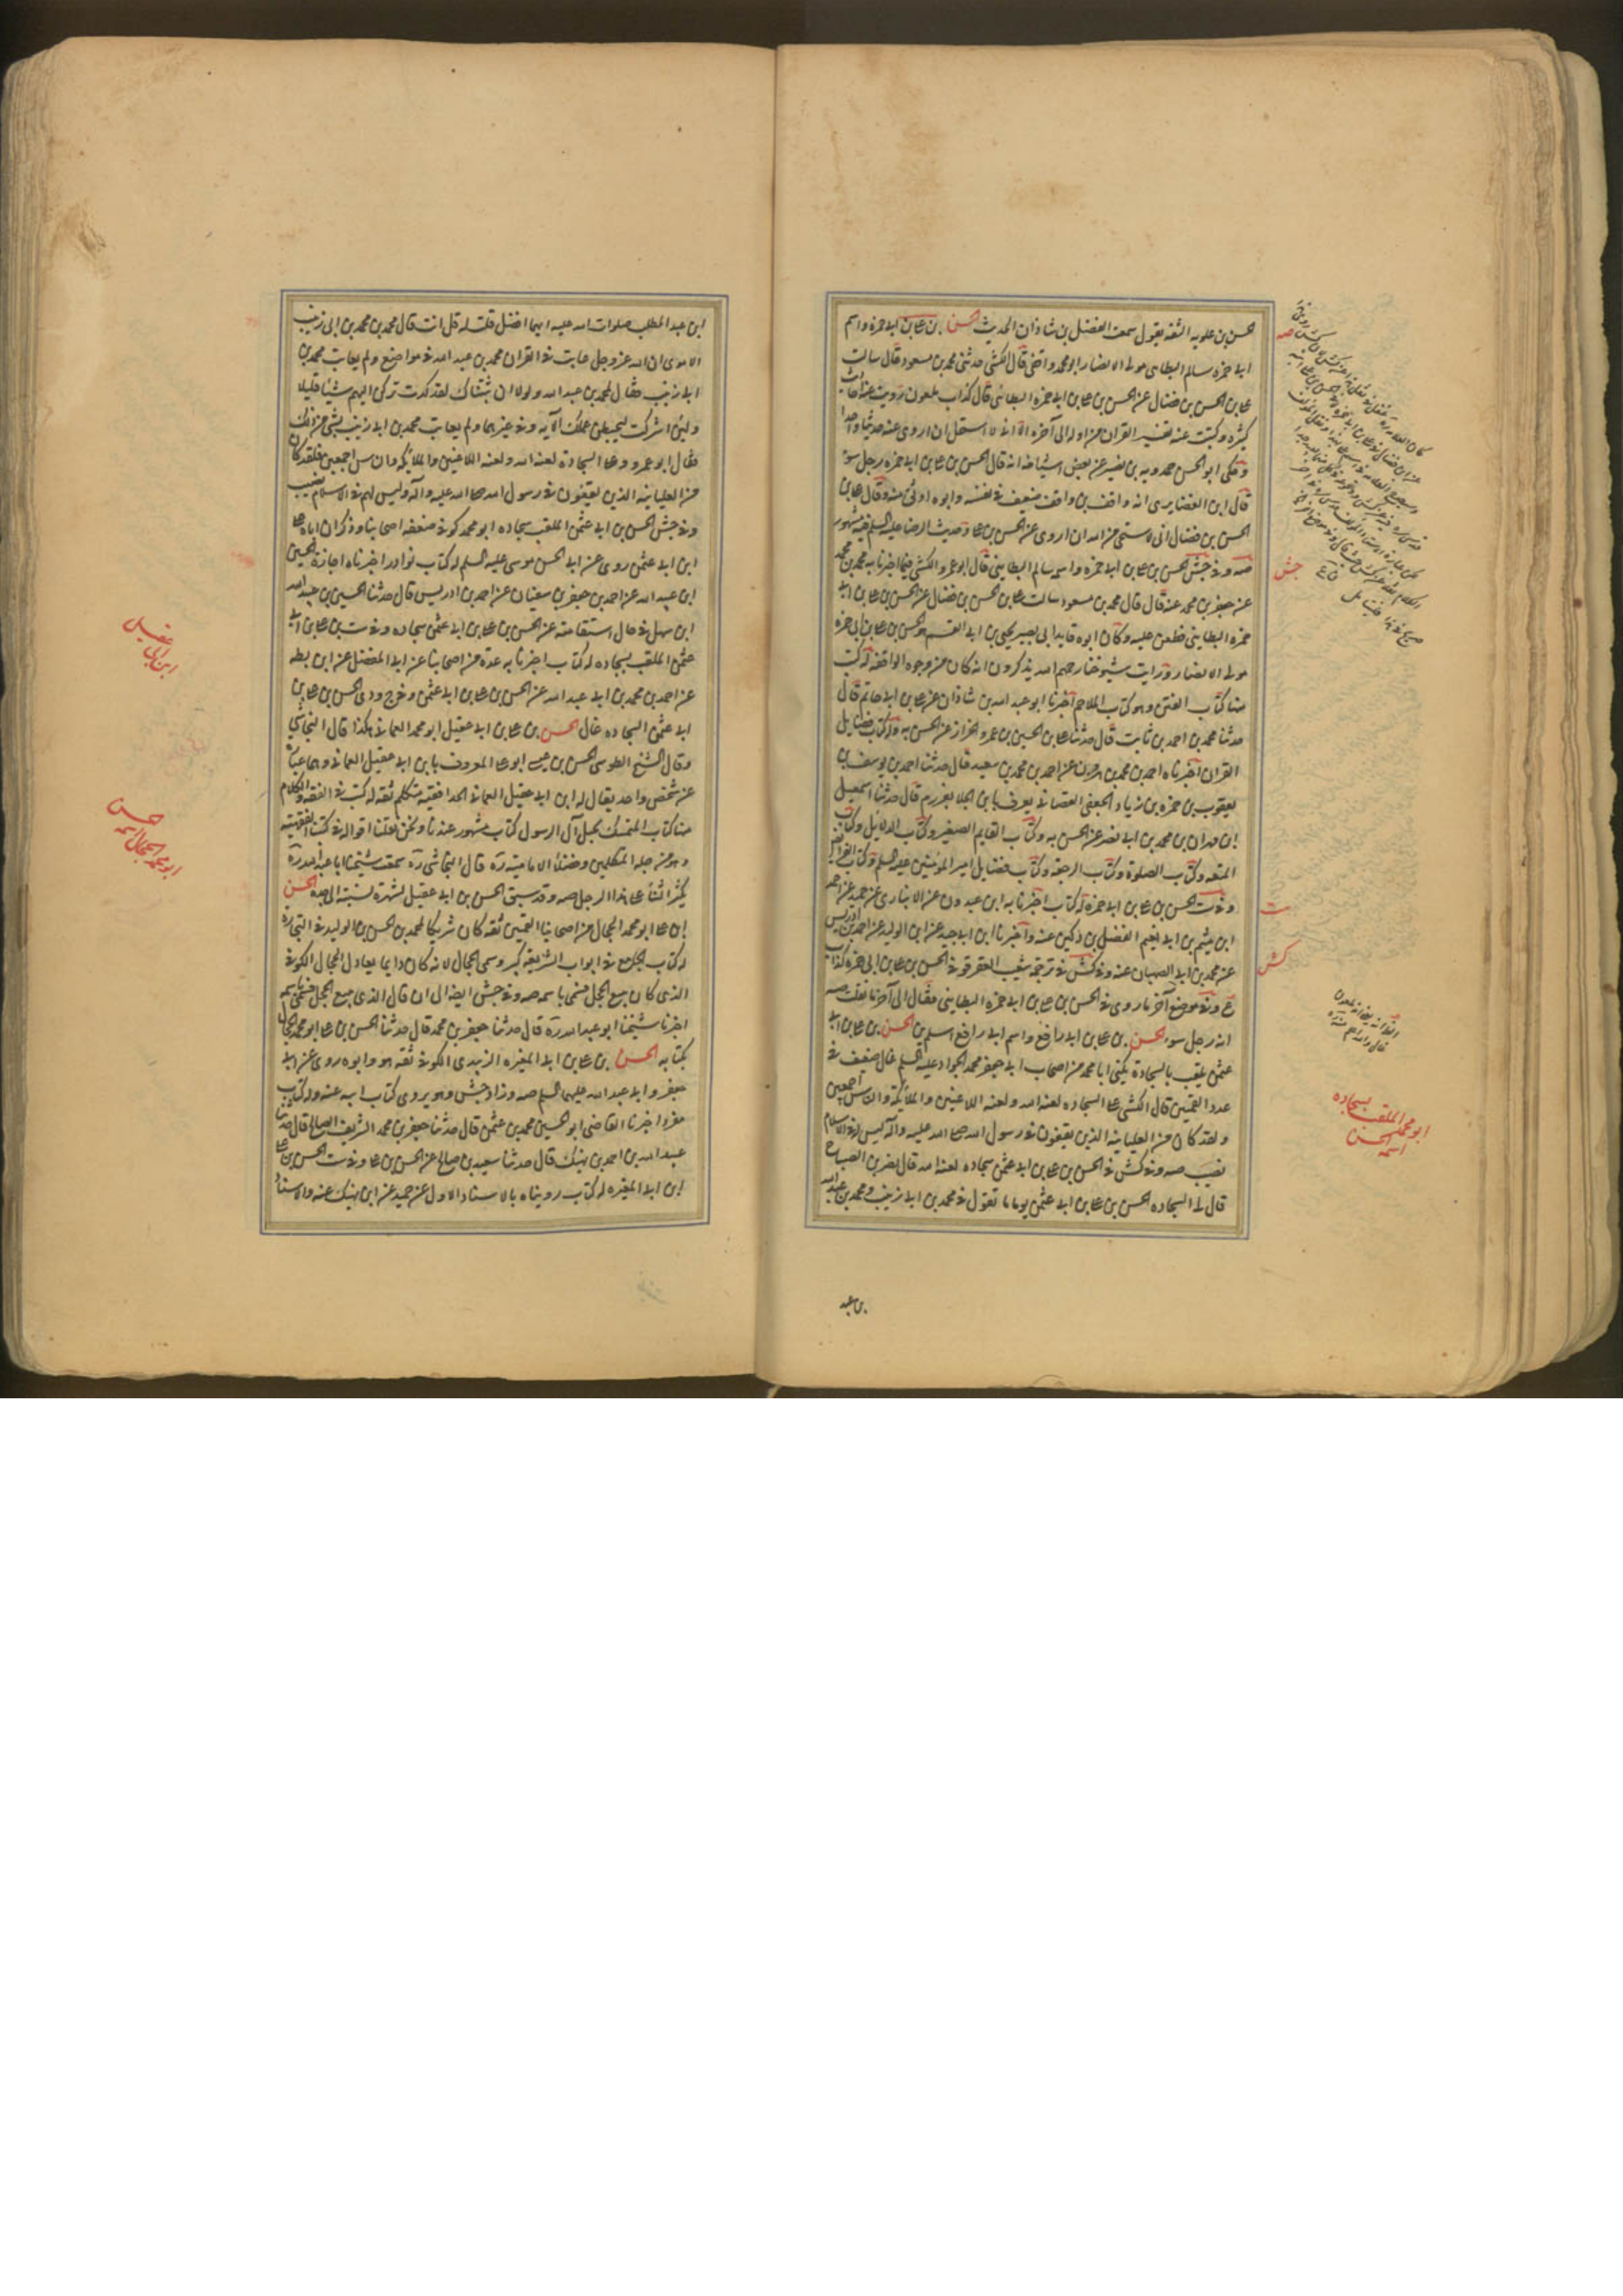 حسن بن علويه الثقه يقول سمعت الفضل بن شاذان الحديث حسن بن علي بن ابي حمزه واسم
ابي حمزه سالم البطايني مولى الانصار ابو محمد واقفي قال الكشي حدثني محمد بن مسعود قال سالت
علي بن الحسن بن فضال عن الحسن بن علي بن ابي حمزه البطايني قال كذاب ملعون رويت عنه احاديث
كثيره وكتبت عنه تفسير القران من اوله الى آخره الا اني لا استحل ان اروي عنه حديثا واحدا
وحكى ابو الحسن حمدويه بن نصير عن بعض اشياخه انه قال الحسن بن علي بن ابي حمزه رجل سوء
قال ابن الغضايري انه واقف بن واقف ضعيف في نفسه وابوه اوثق منه وقال علي بن
الحسن بن فضال اني لاستحي من الله ان اروي عن الحسن بن علي وحديث الرضا عليه السلم فيه مشهور
صه وفي جش الحسن بن علي بن ابي حمزه واسمه سالم البطايني قال ابو عمرو الكشي فيما اخبرنا به محمد بن محمد
عن جعفر بن محمد عنه قال قال محمد بن مسعود سالت علي بن الحسن بن فضال عن الحسن بن علي بن ابي
حمزه البطايني فطعن عليه وكان ابوه قايد ابي بصير يحيى بن ابي القسم هو الحسن بن علي بن ابي حمزه
مولى الانصار ورايت شيوخنا رحمهم الله يذكرون انه كان من وجوه الواقفه له كتب
منها كتاب الفتن وهو كتاب الملاحم اخبرنا ابو عبد الله بن شاذان عن علي بن ابي حاتم قال
حدثنا محمد بن احمد بن ثابت قال حدثنا علي بن الحسين بن عمرو الخزاز عن الحسن به وله كتاب فضايل
القران اخبرناه احمد بن محمد بن هرون عن احمد بن محمد بن سعيد قال حدثنا احمد بن يوسف بن
يعقوب بن حمزه بن زياد الجعفي القصباني يعرف بابن الجلا بعرزم قال حدثنا اسمعيل
ابن مهران بن محمد بن ابي نصر عن الحسن به وكتاب القايم الصغير وكتاب الدلايل وكتاب
المتعه وكتاب الصلوة وكتاب الرجعه وكتاب فضايل امير المؤمنين عليه السلم وكتاب الفرايض
وفي ست الحسن بن علي بن ابي حمزه له كتاب اخبرنا به ابن عبدون عن الانباري عن حميد عن احمد
ابن ميثم بن ابي نعيم الفضل بن دكين عنه واخبرنا ابن ابي جيد عن ابن الوليد عن احمد بن ادريس
عن محمد بن ابي الصهبان عنه وفي كش في ترجمة شعيب العقرقوفي الحسن بن علي بن ابي حمزه كذاب
وفي موضع آخر ما روي في الحسن بن علي بن ابي حمزه البطايني فقال الى آخر ما نقلت صه
انه رجل سوء الحسن بن علي بن ابي رافع واسم ابي رافع اسلم بن الحسن بن علي بن ابي
عثمن يلقب بالسجادة يكنى ابا محمد من اصحاب ابي جعفر محمد الجواد عليه السلم غال ضعيف في
عدد القميين قال الكشي على السجاده لعنه الله ولعنه اللاعنين والملائكة والناس اجمعين
ولقد كان من العليائيه الذين يقعون في رسول الله صلى الله عليه وآله ليس لهم في الاسلام
نصيب صه وفي كش في الحسن بن علي بن ابي عثمن سجاده لعنه الله قال نصر بن الصباح
قال لي السجاده الحسن بن علي بن ابي عثمن يوما ما تقول في محمد بن ابي زينب ومحمد بن عبد الله
بن عبد
صه
جش
ست
كش
ابو محمد الملقب بسجاده
اسمه الحسن
ابن عبد المطلب صلوات الله عليه ايهما افضل قلت له قل انت قال محمد بن محمد بن ابي زينب
الاسدي ان الله عز وجل عاتب في القران محمد بن عبد الله في مواضع ولم يعاتب محمد بن
ابي زينب فقال لمحمد بن عبد الله ولولا ان ثبتناك لقد كدت تركن اليهم شيئا قليلا
ولئن اشركت ليحبطن عملك الآيه وفي غيرهما ولم يعاتب محمد بن ابي زينب بشي من ذلك
فقال ابو عمرو وعلى السجادة لعنة الله ولعنه اللاعنين والملائكه والناس اجمعين فلقد كان
من العليائيه الذين يقعون في رسول الله صلى الله عليه وآله وليس لهم في الاسلام نصيب
وفي جش الحسن بن ابي عثمن الملقب سجاده ابو محمد كوفي ضعفه اصحابنا وذكر ان اباه علي
ابن ابي عثمن روى عن ابي الحسن موسى عليه السلم له كتاب نوادر اخبرناه اجازة الحسين
ابن عبيد الله عن احمد بن جعفر بن سفيان عن احمد بن ادريس قال حدثنا الحسين بن عبيد الله
ابن سهل في حال استقامته عن الحسن بن علي بن ابي عثمن سجاده وفي ست بن علي بن ابي
عثمن الملقب بسجاده له كتاب اخبرنا به عدة من اصحابنا عن ابي المفضل عن ابن بطه
عن احمد بن محمد بن ابي عبد الله عن الحسن بن علي بن ابي عثمن وفي ج ودي الحسن بن علي بن
ابي عثمن السجاده غال الحسن بن علي بن ابي عقيل ابو محمد العماني هكذا قال النجاشي
وقال الشيخ الطوسي الحسن بن عيسى ابو علي المعروف بابن ابي عقيل العماني وهما عبارة
عن شخص واحد يقال له ابن ابي عقيل العماني الحذا فقيه متكلم ثقه له كتب في الفقه والكلام
منها كتاب المتمسك بحبل آل الرسول كتاب مشهور عندنا ونحن نقلنا اقواله في كتبنا الفقهيه
وهو من جله المتكلمين وفضلاء الاماميه ره قال النجاشي ره سمعت شيخنا ابا عبد الله ره
يكثر الثناء على هذا الرجل صه وقد سبق الحسن بن ابي عقيل لشهرة نسبته الى جده الحسن
ابن علي ابو محمد الحجال من اصحابنا القميين ثقه كان شريكا لمحمد بن الحسن بن الوليد في التجاره
له كتاب الجامع في ابواب الشريعه كبير وسمي الحجال لانه كان دايما يعادل الحجال الكوفي
الذي كان يبيع الحجل فسمي باسمه صه وفي جش ايضا الى ان قال الذي يبيع الحجل فسمي باسمه
اخبرنا شيخنا ابو عبد الله ره قال حدثنا جعفر بن محمد قال حدثنا الحسن بن علي ابو محمد الحجال
بكتابه الحسن بن علي بن ابي المغيره الزبيدي الكوفي ثقه هو وابوه روى عن ابي
جعفر وابي عبد الله عليهما السلم صه وزاد جش وهو يروي كتاب ابيه عنه وله كتاب
مفرد اخبرنا القاضي ابو الحسين محمد بن عثمن قال حدثنا جعفر بن محمد الشريف الصالح قال حدثنا
عبيد الله بن احمد بن نهيك قال حدثنا سعيد بن صالح عن الحسن بن علي وفي ست الحسن بن علي
ابن ابي المغيره له كتاب رويناه بالاسناد الاول عن حميد عن ابن نهيك عنه والاسناد
ابن ابي عقيل
حسن
ابو محمد الحجال اسمه